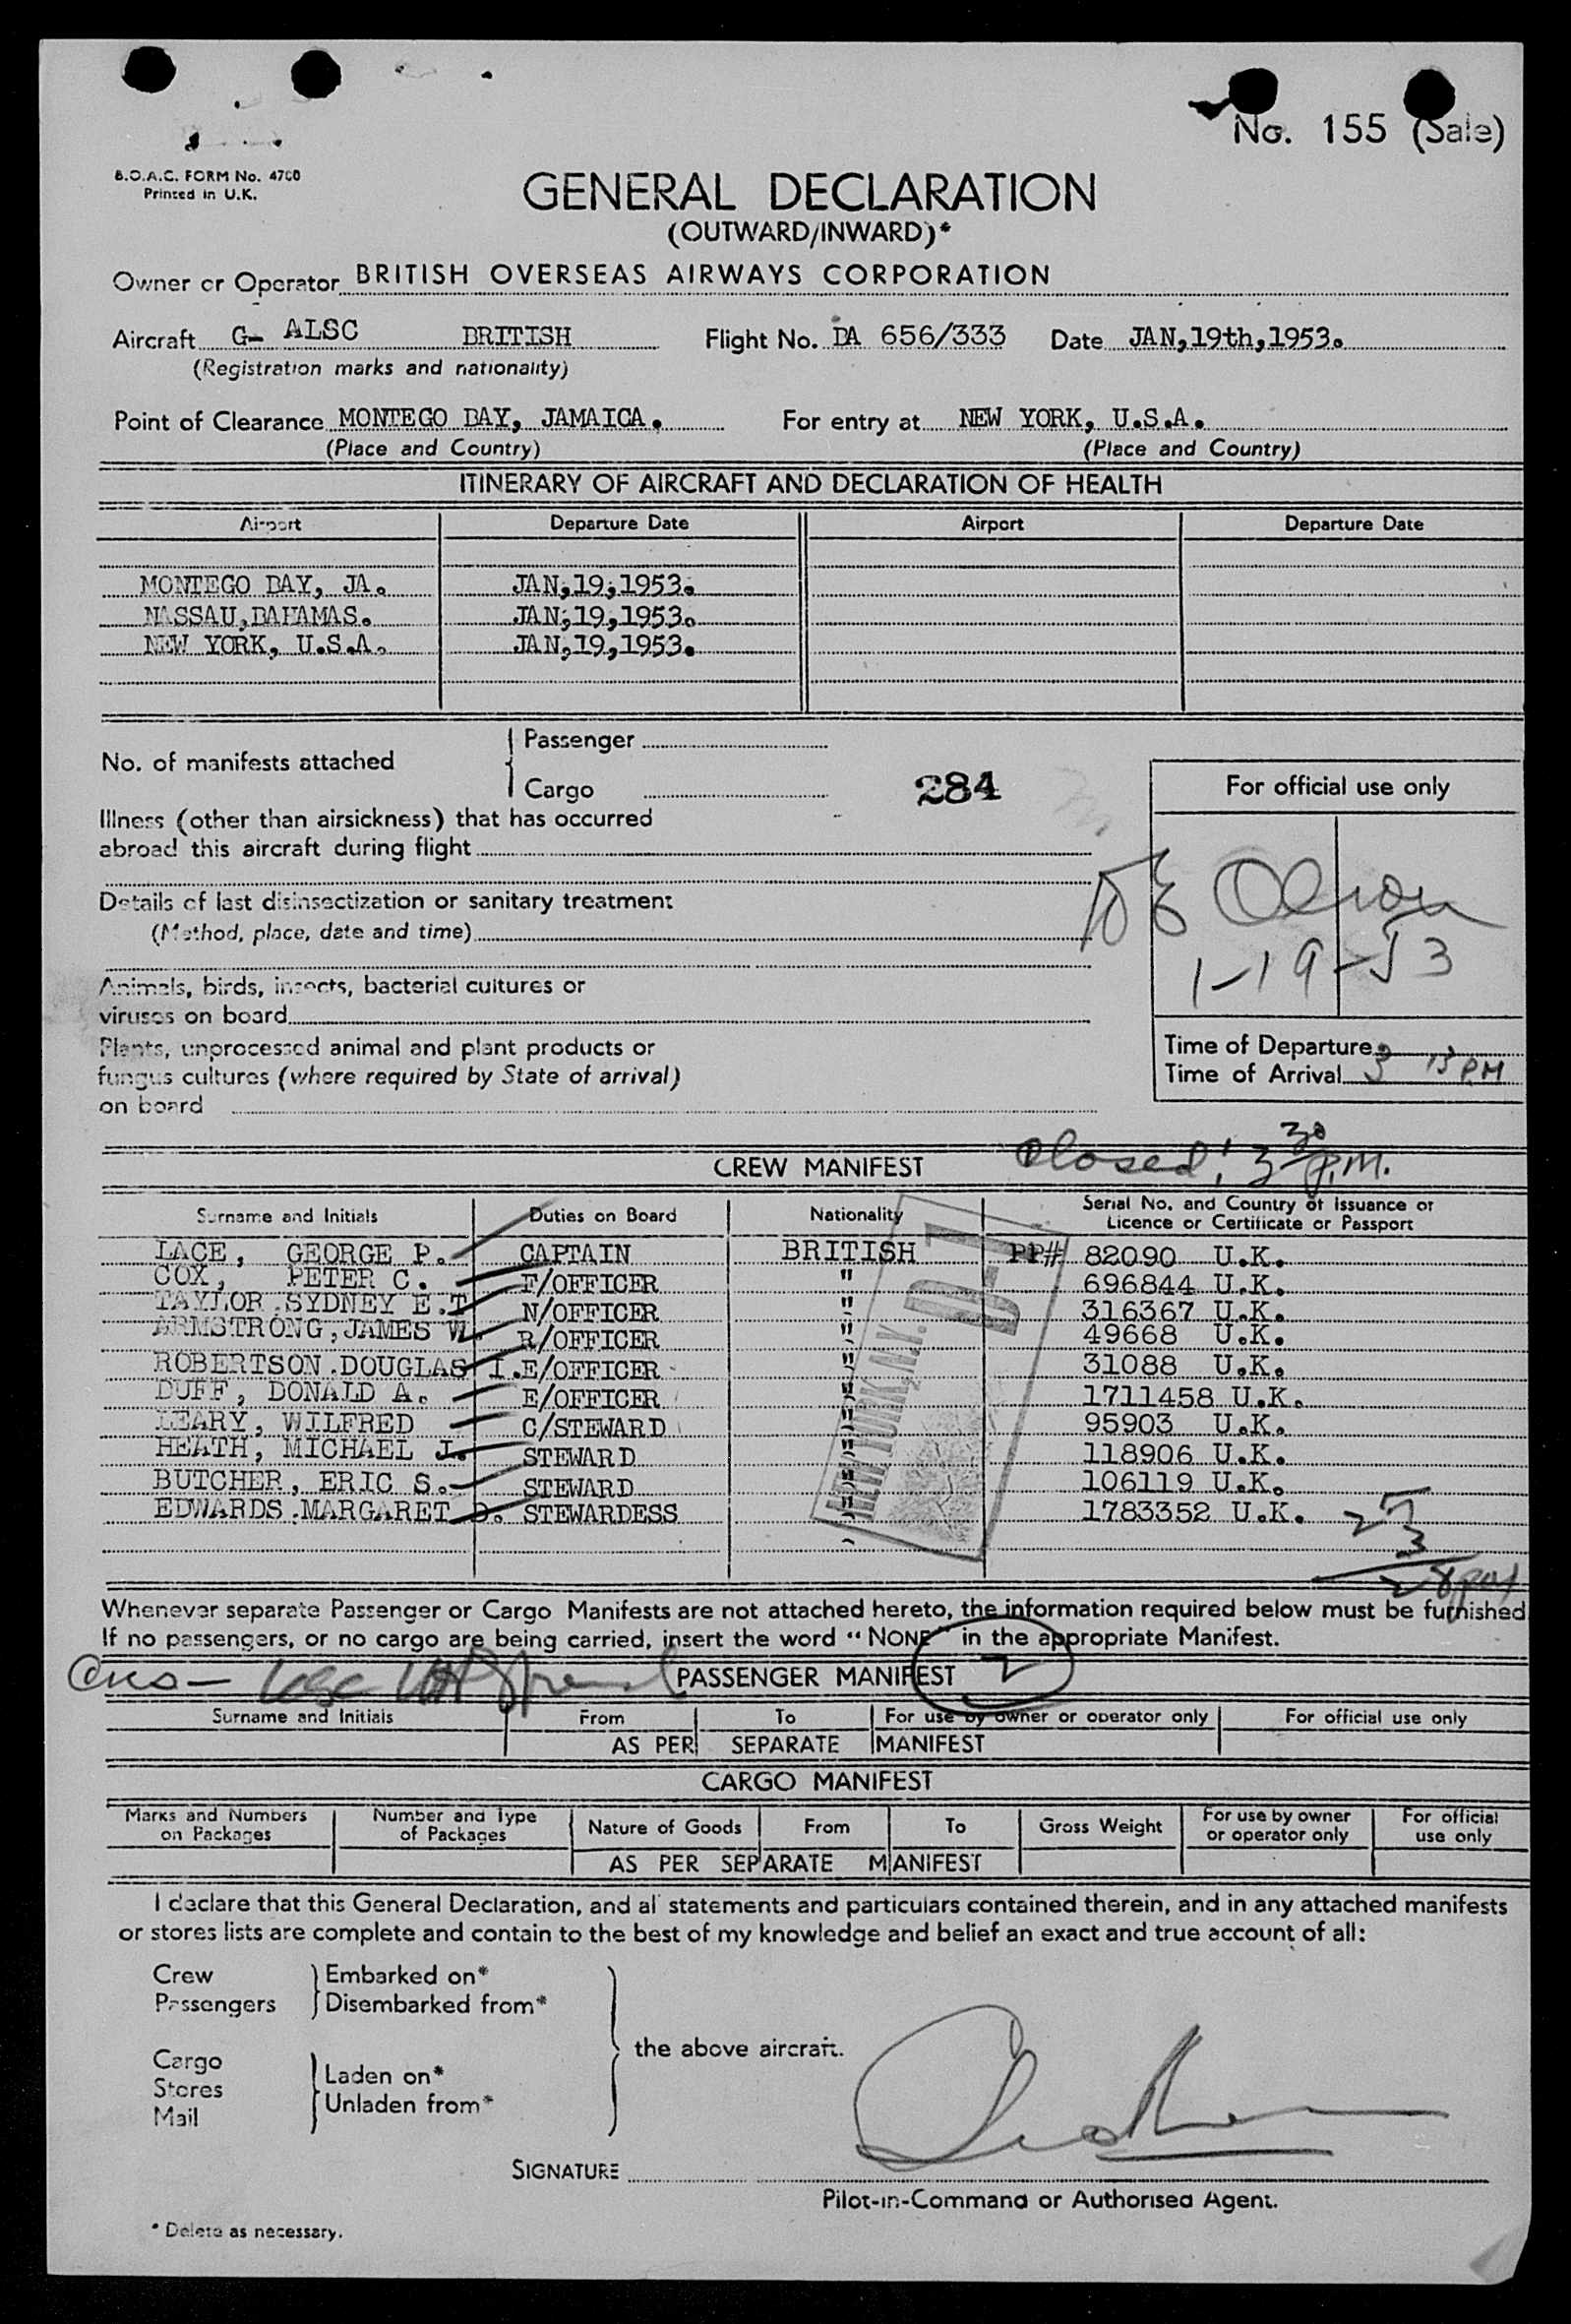 No. 155 (Sale)
B.O.A.C. FORM No. 4700
Printed in U.K.
GENERAL DECLARATION
(OUTWARD/INWARD)*
Owner or Operator BRITISH OVERSEAS AIRWAYS CORPORATION
Aircraft G- ALSC BRITISH Flight No. BA 656/333 Date JAN,19th,1953.
(Registration marks and nationality)
Point of Clearance MONTEGO BAY, JAMAICA. For entry at NEW YORK, U.S.A.
(Place and Country) (Place and Country)
ITINERARY OF AIRCRAFT AND DECLARATION OF HEALTH
Airport Departure Date Airport Departure Date
MONTEGO BAY, JA. JAN,19,1953.
NASSAU,BAHAMAS. JAN,19,1953.
NEW YORK, U.S.A. JAN,19,1953.
No. of manifests attached
Passenger
Cargo
284
For official use only
Illness (other than airsickness) that has occurred
abroad this aircraft during flight
Details of last disinsectization or sanitary treatment
(Method, place, date and time)
Olson
1-19-53
Animals, birds, insects, bacterial cultures or
viruses on board
Plants, unprocessed animal and plant products or
fungus cultures (where required by State of arrival)
on board
Time of Departure
Time of Arrival 3 15 PM
CREW MANIFEST Closed 3 30 P.M.
Surname and Initials Duties on Board Nationality Serial No. and Country of Issuance or
Licence or Certificate or Passport
LACE, GEORGE P. CAPTAIN BRITISH PP# 82090 U.K.
COX, PETER C. F/OFFICER " 696844 U.K.
TAYLOR.SYDNEY E.T N/OFFICER " 316367 U.K.
ARMSTRONG,JAMES W. R/OFFICER " 49668 U.K.
ROBERTSON.DOUGLAS I.E/OFFICER " 31088 U.K.
DUFF, DONALD A. E/OFFICER " 1711458 U.K.
LEARY, WILFRED C/STEWARD " 95903 U.K.
HEATH, MICHAEL J. STEWARD " 118906 U.K.
BUTCHER, ERIC S. STEWARD " 106119 U.K.
EDWARDS.MARGARET D. STEWARDESS " 1783352 U.K.
NEW YORK, N.Y.
25
3
28
Whenever separate Passenger or Cargo Manifests are not attached hereto, the information required below must be furnished
If no passengers, or no cargo are being carried, insert the word “NONE” in the appropriate Manifest.
PASSENGER MANIFEST 2
Surname and Initials From To For use by owner or operator only For official use only
AS PER SEPARATE MANIFEST
CARGO MANIFEST
Marks and Numbers on Packages Number and Type of Packages Nature of Goods From To Gross Weight For use by owner or operator only For official use only
AS PER SEPARATE MANIFEST
I declare that this General Declaration, and al statements and particulars contained therein, and in any attached manifests
or stores lists are complete and contain to the best of my knowledge and belief an exact and true account of all:
Crew Embarked on*
Passengers Disembarked from*
the above aircraft.
Cargo
Stores
Mail
Laden on*
Unladen from*
SIGNATURE
Pilot-in-Command or Authorised Agent.
* Delete as necessary.